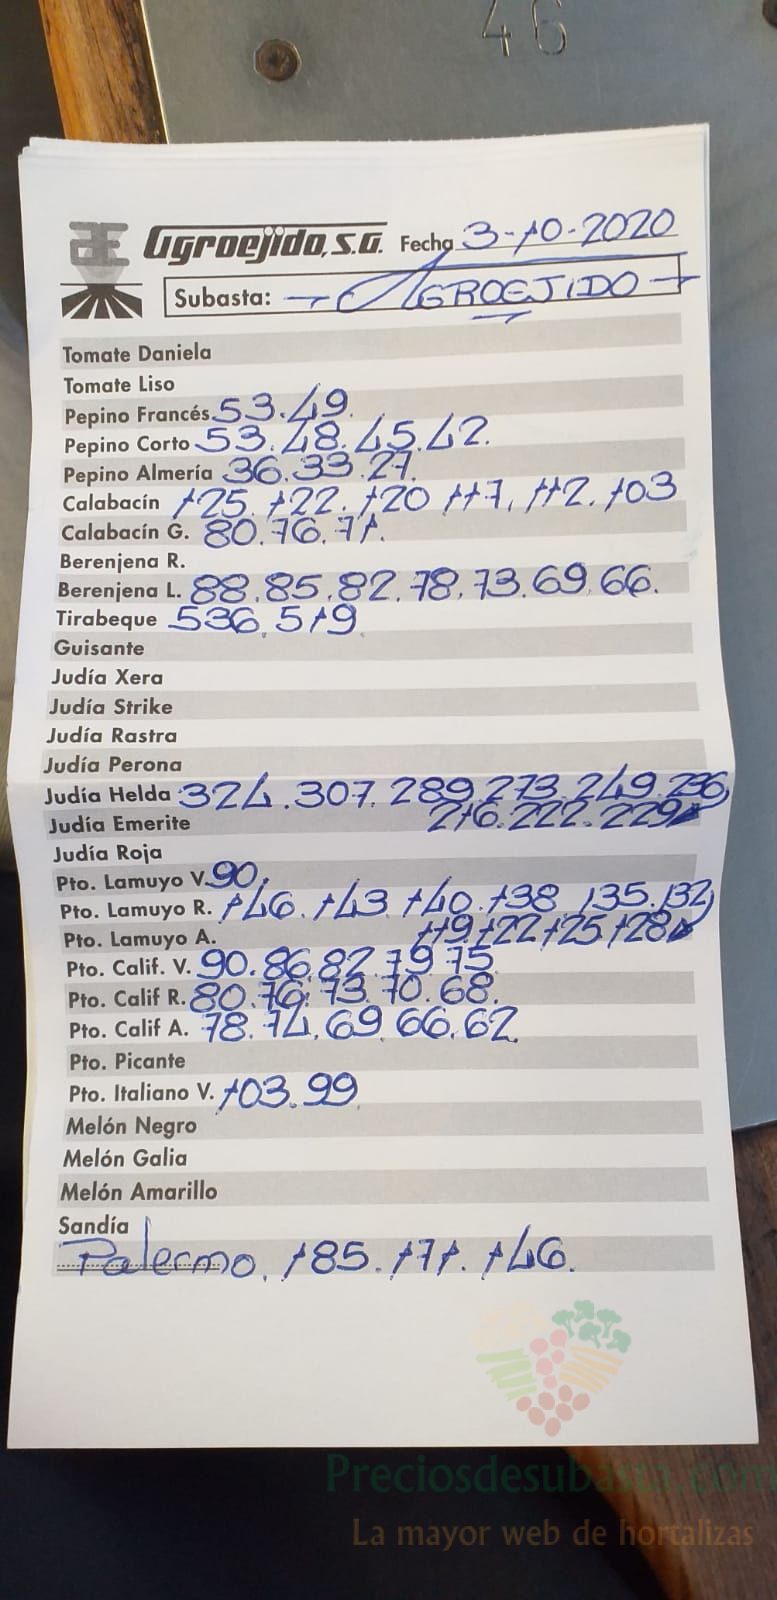 46
Agroejido, S.G. Fecha 3-10-2020
Subasta: → AGROEJIDO →
Tomate Daniela
Tomate Liso
Pepino Francés 53.49.
Pepino Corto 53.48.45.42.
Pepino Almería 36.33.27.
Calabacín 125.122.120 117.112.103
Calabacín G. 80.76.71.
Berenjena R.
Berenjena L. 88.85.82.78.73.69.66.
Tirabeque 536.519
Guisante
Judía Xera
Judía Strike
Judía Rastra
Judía Perona
Judía Helda 324.307.289.273.249.236
Judía Emerite 216.222.229
Judía Roja
Pto. Lamuyo V. 90.
Pto. Lamuyo R. 146.143.140.138 135.132
Pto. Lamuyo A. 119.122 125.128
Pto. Calif. V. 90.86.82.79 75
Pto. Calif R. 80.76.73.70.68.
Pto. Calif A. 78.74.69.66.62.
Pto. Picante
Pto. Italiano V. 103.99
Melón Negro
Melón Galia
Melón Amarillo
Sandía
Palermo. 185.171.146.
Preciosdesubasta.com
La mayor web de hortalizas